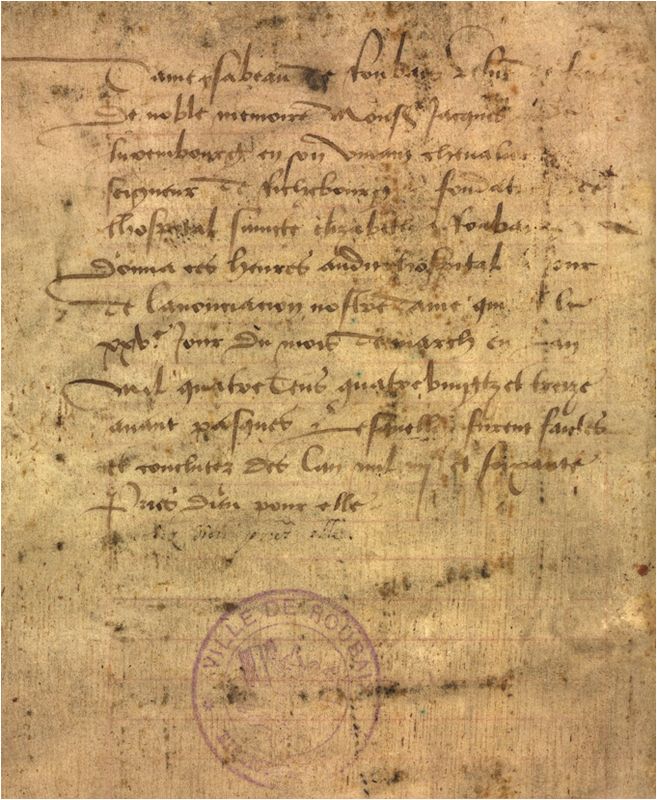 Dame ysabeau de Roubaix
De noble memoire Monsr Jacques
luxembourg en son vivant chevalier
seigneur de Richebourg fondat
lhospital saincte elizabeth Roubaix
Donna ces heures audict hospital jour
de lanonciacion nostre dame qui
xxve jour du mois de march en lan
mil quatre cens quatrevingtz et treize
avant pasques Lesquelles furent faictes
et conclutez des lan mil iiijc et soixante
Pries dieu pour elle
dieu pour elle
VILLE DE ROUBAIX